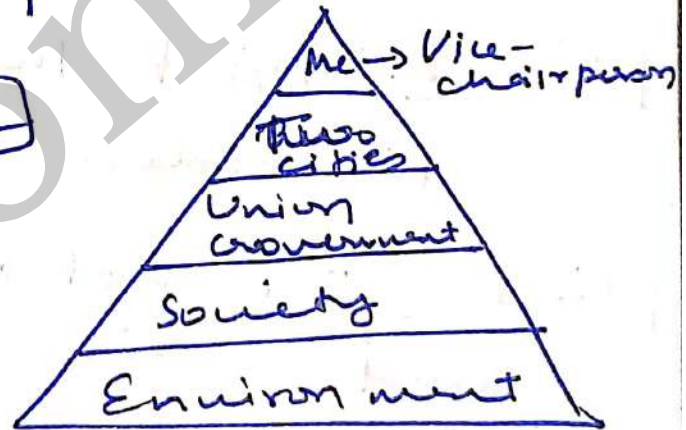 Me → Vice-
chairperson
Two
cities
Union
Government
Society
Environment